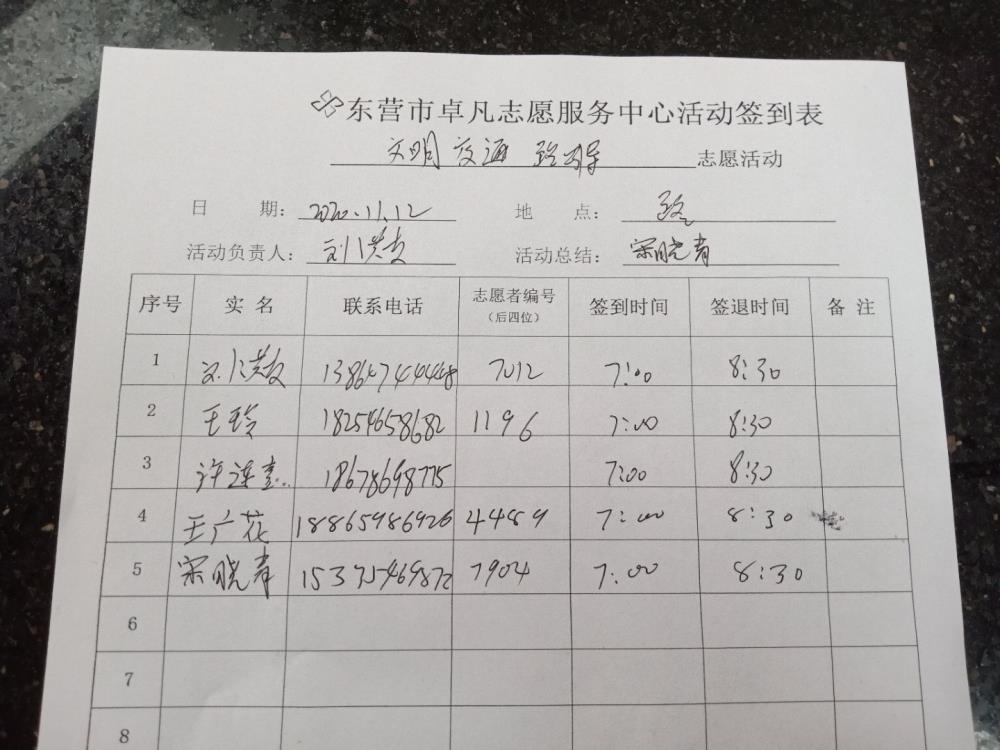 东营市卓凡志愿服务中心活动签到表
文明交通 引导 志愿活动
日 期: 2020.11.12 地 点:
活动负责人: 刘洪友 活动总结: 宋晓青
序号 实名 联系电话 志愿者编号(后四位) 签到时间 签退时间 备注
1 刘洪友 13864744448 7012 7:00 8:30
2 王玲 18254658682 1196 7:00 8:30
3 许连 18678698775 7:00 8:30
4 王广花 18865986926 4489 7:00 8:30
5 宋晓青 15375469872 7904 7:00 8:30
6
7
8